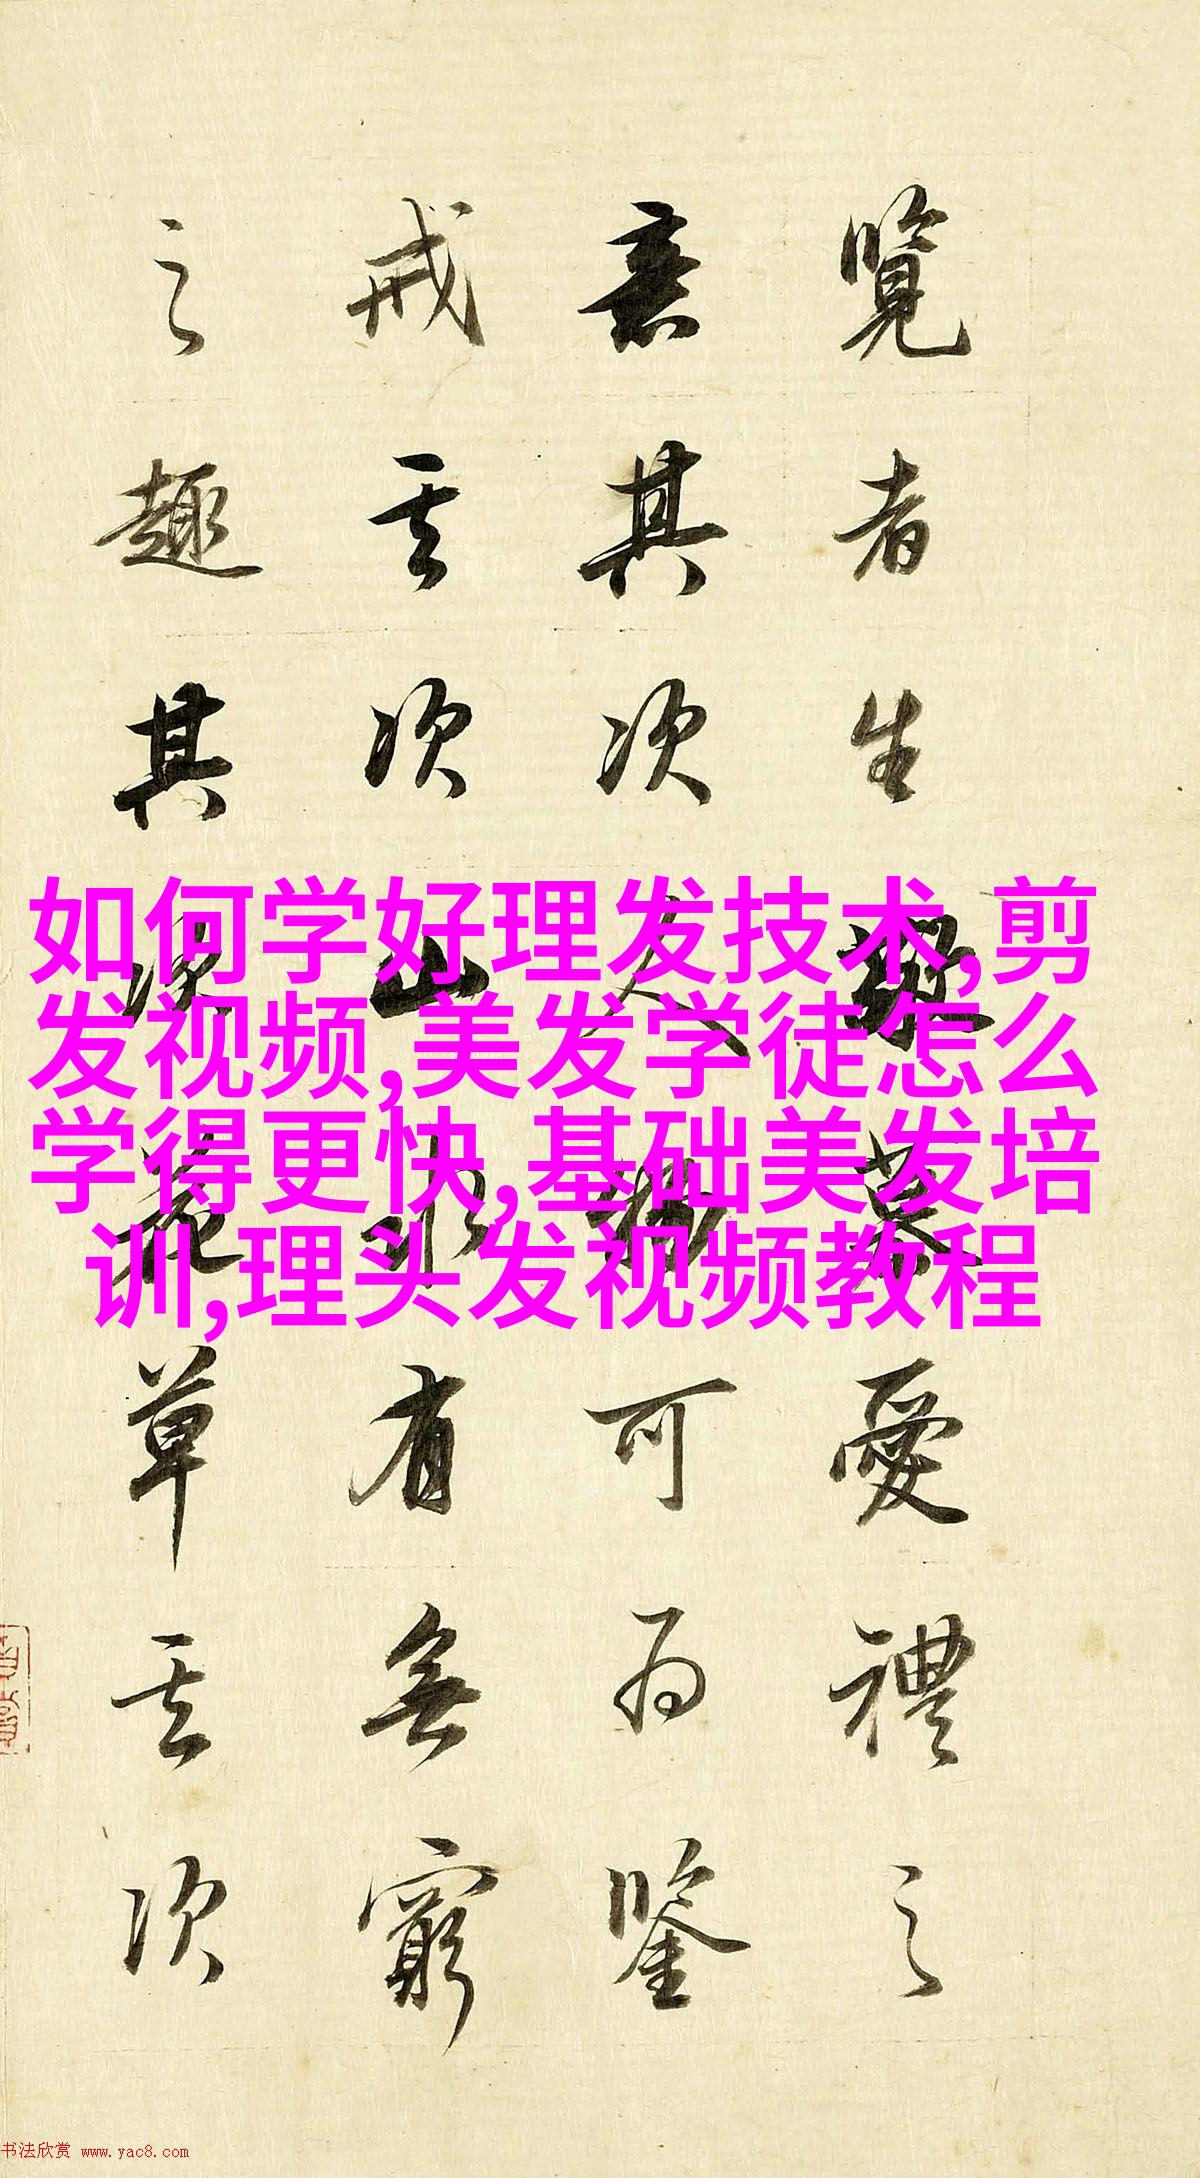 覽者生慕愛禮之
意其次人物可為鑒
戒其次山水有無窮
之趣其次花草其次
如何学好理发技术,剪
发视频,美发学徒怎么
学得更快,基础美发培
训,理头发视频教程
书法欣赏 www.yac8.com